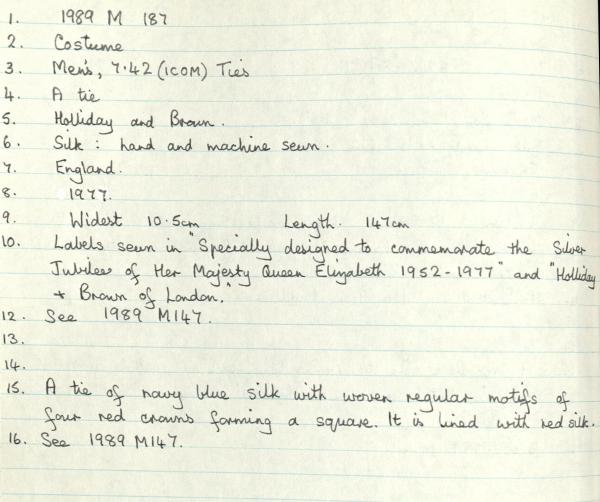 1. 1989 M 187
2. Costume
3. Men's, 7.42 (ICOM) Ties
4. A tie
5. Holliday and Brown.
6. Silk: hand and machine sewn.
7. England.
8. 1977.
9. Widest 10.5cm Length. 147cm
10. Labels sewn in "Specially designed to commemorate the Silver
Jubilee of Her Majesty Queen Elizabeth 1952-1977" and "Holliday
+ Brown of London."
12. See 1989 M147.
13.
14.
15. A tie of navy blue silk with woven regular motifs of
four red crowns forming a square. It is lined with red silk.
16. See 1989 M147.